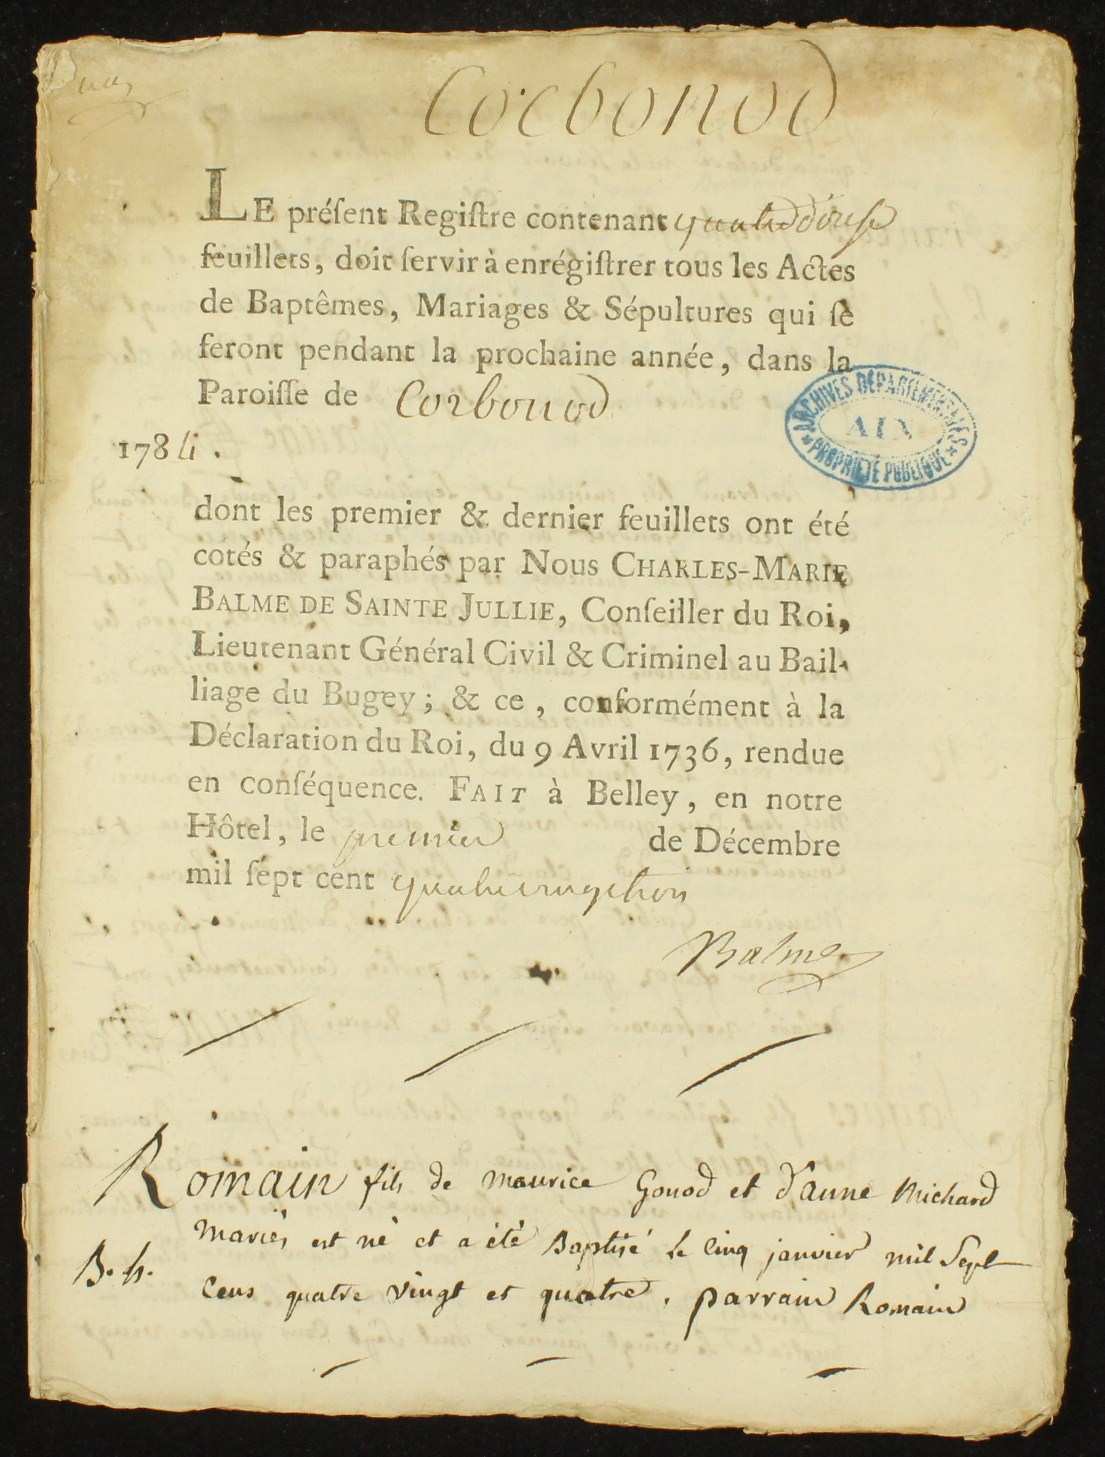 Corbonod
LE préſent Regiſtre contenant douſe
feuillets, doit ſervir à enrégiſtrer tous les Actes
de Baptêmes, Mariages & Sépultures qui ſe
feront pendant la prochaine année, dans la
Paroiſſe de Corbonod
ARCHIVES DÉPARTEMENTALES
AIN
PROPRIÉTÉ PUBLIQUE
1784.
dont les premier & dernier feuillets ont été
cotés & paraphés par Nous CHARLES-MARIE
BALME DE SAINTE JULLIE, Conſeiller du Roi,
Lieutenant Général Civil & Criminel au Bail-
liage du Bugey ; & ce , conformément à la
Déclaration du Roi, du 9 Avril 1736, rendue
en conſéquence. FAIT à Belley, en notre
Hôtel, le premier de Décembre
mil ſept cent quatrevingttrois
Balme
Romain fils de maurice Gonod et d'anne Michard
Mariés est né et a été Baptisé le Cinq janvier mil Sept
B. h. Cens quatre vingt et quatre . parrain Romain